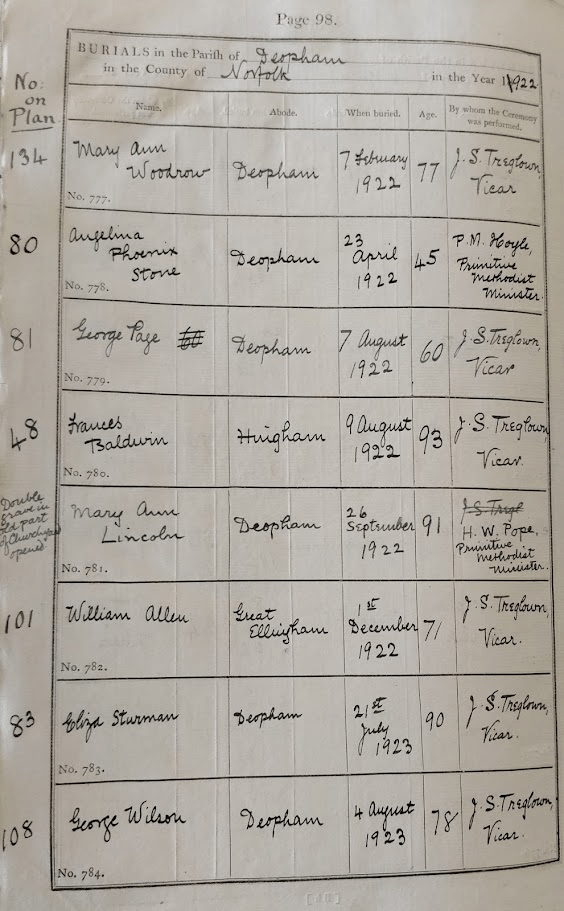 Page 98.
BURIALS in the Parish of Deopham
in the County of Norfolk in the Year 1922
No:
on
Plan.
Name. Abode. When buried. Age. By whom the Ceremony
was performed.
134 Mary Ann
Woodrow Deopham 7 February
1922 77 J. S. Treglown,
Vicar
No. 777.
80 Angelina
Phoenix
Stone Deopham 23
April
1922 45 P. M. Hoyle,
Primitive
Methodist
Minister.
No. 778.
81 George Page 60 Deopham 7 August
1922 60 J. S. Treglown,
Vicar
No. 779.
48 Frances
Baldwin Hingham 9 August
1922 93 J. S. Treglown,
Vicar.
No. 780.
Double
grave in
part
of Churchyard
opened
Mary Ann
Lincoln Deopham 26
September
1922 91 J S Tregl
H. W. Pope,
Primitive
Methodist
Minister.
No. 781.
101 William Allen Great
Ellingham 1st
December
1922 71 J. S. Treglown,
Vicar.
No. 782.
83 Eliza Sturman Deopham 21st
July
1923 90 J. S. Treglown,
Vicar.
No. 783.
108 George Wilson Deopham 4 August
1923 78 J. S. Treglown,
Vicar.
No. 784.